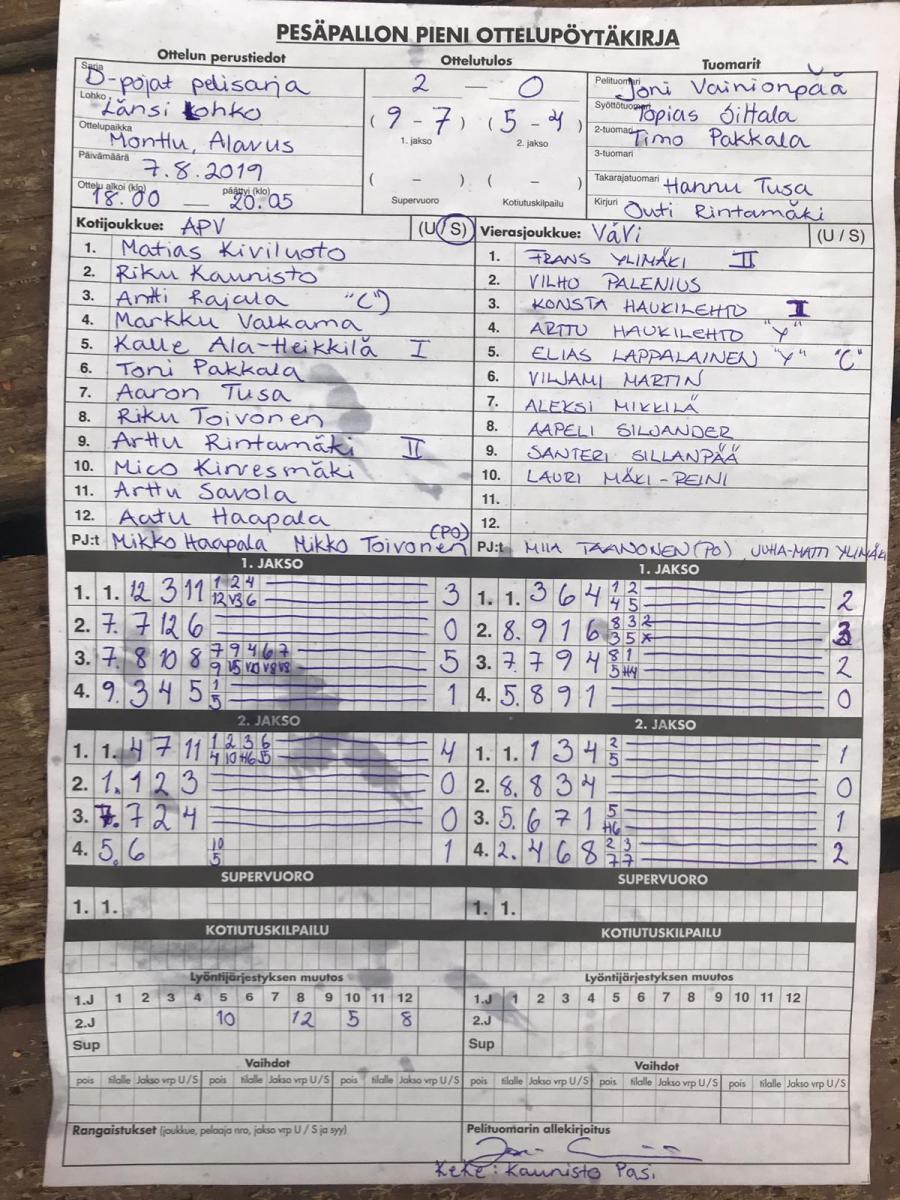 PESÄPALLON PIENI OTTELUPÖYTÄKIRJA
Ottelun perustiedot Ottelutulos Tuomarit
Sarja D-pojat pelisarja 2 — 0 Pelituomari Joni Vainionpää
Lohko Länsi lohko (9 - 7) (5 - 4) Syöttötuomari Topias Siltala
Ottelupaikka Monttu, Alavus 1. jakso 2. jakso 2-tuomari Timo Pakkala
Päivämäärä 7.8.2019 3-tuomari
( - ) ( - ) Takarajatuomari Hannu Tusa
Ottelu alkoi (klo) 18.00 — päättyi (klo) 20.05 Supervuoro Kotiutuskilpailu Kirjuri Outi Rintamäki
Kotijoukkue: APV (U/S) Vierasjoukkue: VäVi (U / S)
1. Matias Kiviluoto 1. FRANS YLIMÄKI II
2. Riku Kaunisto 2. VILHO PALENIUS
3. Antti Rajala "C") 3. KONSTA HAUKILEHTO I
4. Markku Valkama 4. ARTTU HAUKILEHTO "Y"
5. Kalle Ala-Heikkilä I 5. ELIAS LAPPALAINEN "Y" "C"
6. Toni Pakkala 6. VILJAMI MARTIN
7. Aaron Tusa 7. ALEKSI MIKKILÄ
8. Riku Toivonen 8. AAPELI SILJANDER
9. Arttu Rintamäki II 9. SANTERI SILLANPÄÄ
10. Mico Kirvesmäki 10. LAURI MÄKI-REINI
11. Arttu Savola 11.
12. Aatu Haapala 12.
PJ:t Mikko Haapala Mikko Toivonen (PO) PJ:t MIIA TAANONEN (PO) JUHA-MATTI YLIMÄKI
1. JAKSO 1. JAKSO
1. 1. 12 3 11 1 2 4 3 1. 1. 3 6 4 1 2 2
12 V3 6 4 5
2. 7. 7 12 6 0 2. 8. 9 1 6 8 3 2 3
3 5 x
3. 7. 8 10 8 7 9 4 6 7 5 3. 7. 7 9 4 8 1 2
9 15 V10 V8 V8 5 H4
4. 9. 3 4 5 1 1 4. 5. 8 9 1 0
5
2. JAKSO 2. JAKSO
1. 1. 4 7 11 1 2 3 6 4 1. 1. 1 3 4 2 1
4 10 H6 J5 5
2. 1. 1 2 3 0 2. 8. 8 3 4 0
3. 7. 7 2 4 0 3. 5. 6 7 1 5 1
H6
4. 5. 6 10 1 4. 2. 4 6 8 2 3 2
5 7 7
SUPERVUORO SUPERVUORO
1. 1. 1. 1.
KOTIUTUSKILPAILU KOTIUTUSKILPAILU
Lyöntijärjestyksen muutos Lyöntijärjestyksen muutos
1.J 1 2 3 4 5 6 7 8 9 10 11 12 1.J 1 2 3 4 5 6 7 8 9 10 11 12
2.J 10 12 5 8 2.J
Sup Sup
Vaihdot Vaihdot
pois tilalle Jakso vrp U/S pois tilalle Jakso vrp U/S pois tilalle Jakso vrp U/S pois tilalle Jakso vrp U/S pois tilalle Jakso vrp U/S pois tilalle Jakso vrp U/S
Rangaistukset (joukkue, pelaaja nro, jakso vrp U / S ja syy) Pelituomarin allekirjoitus
KeKe: Kaunisto Pasi